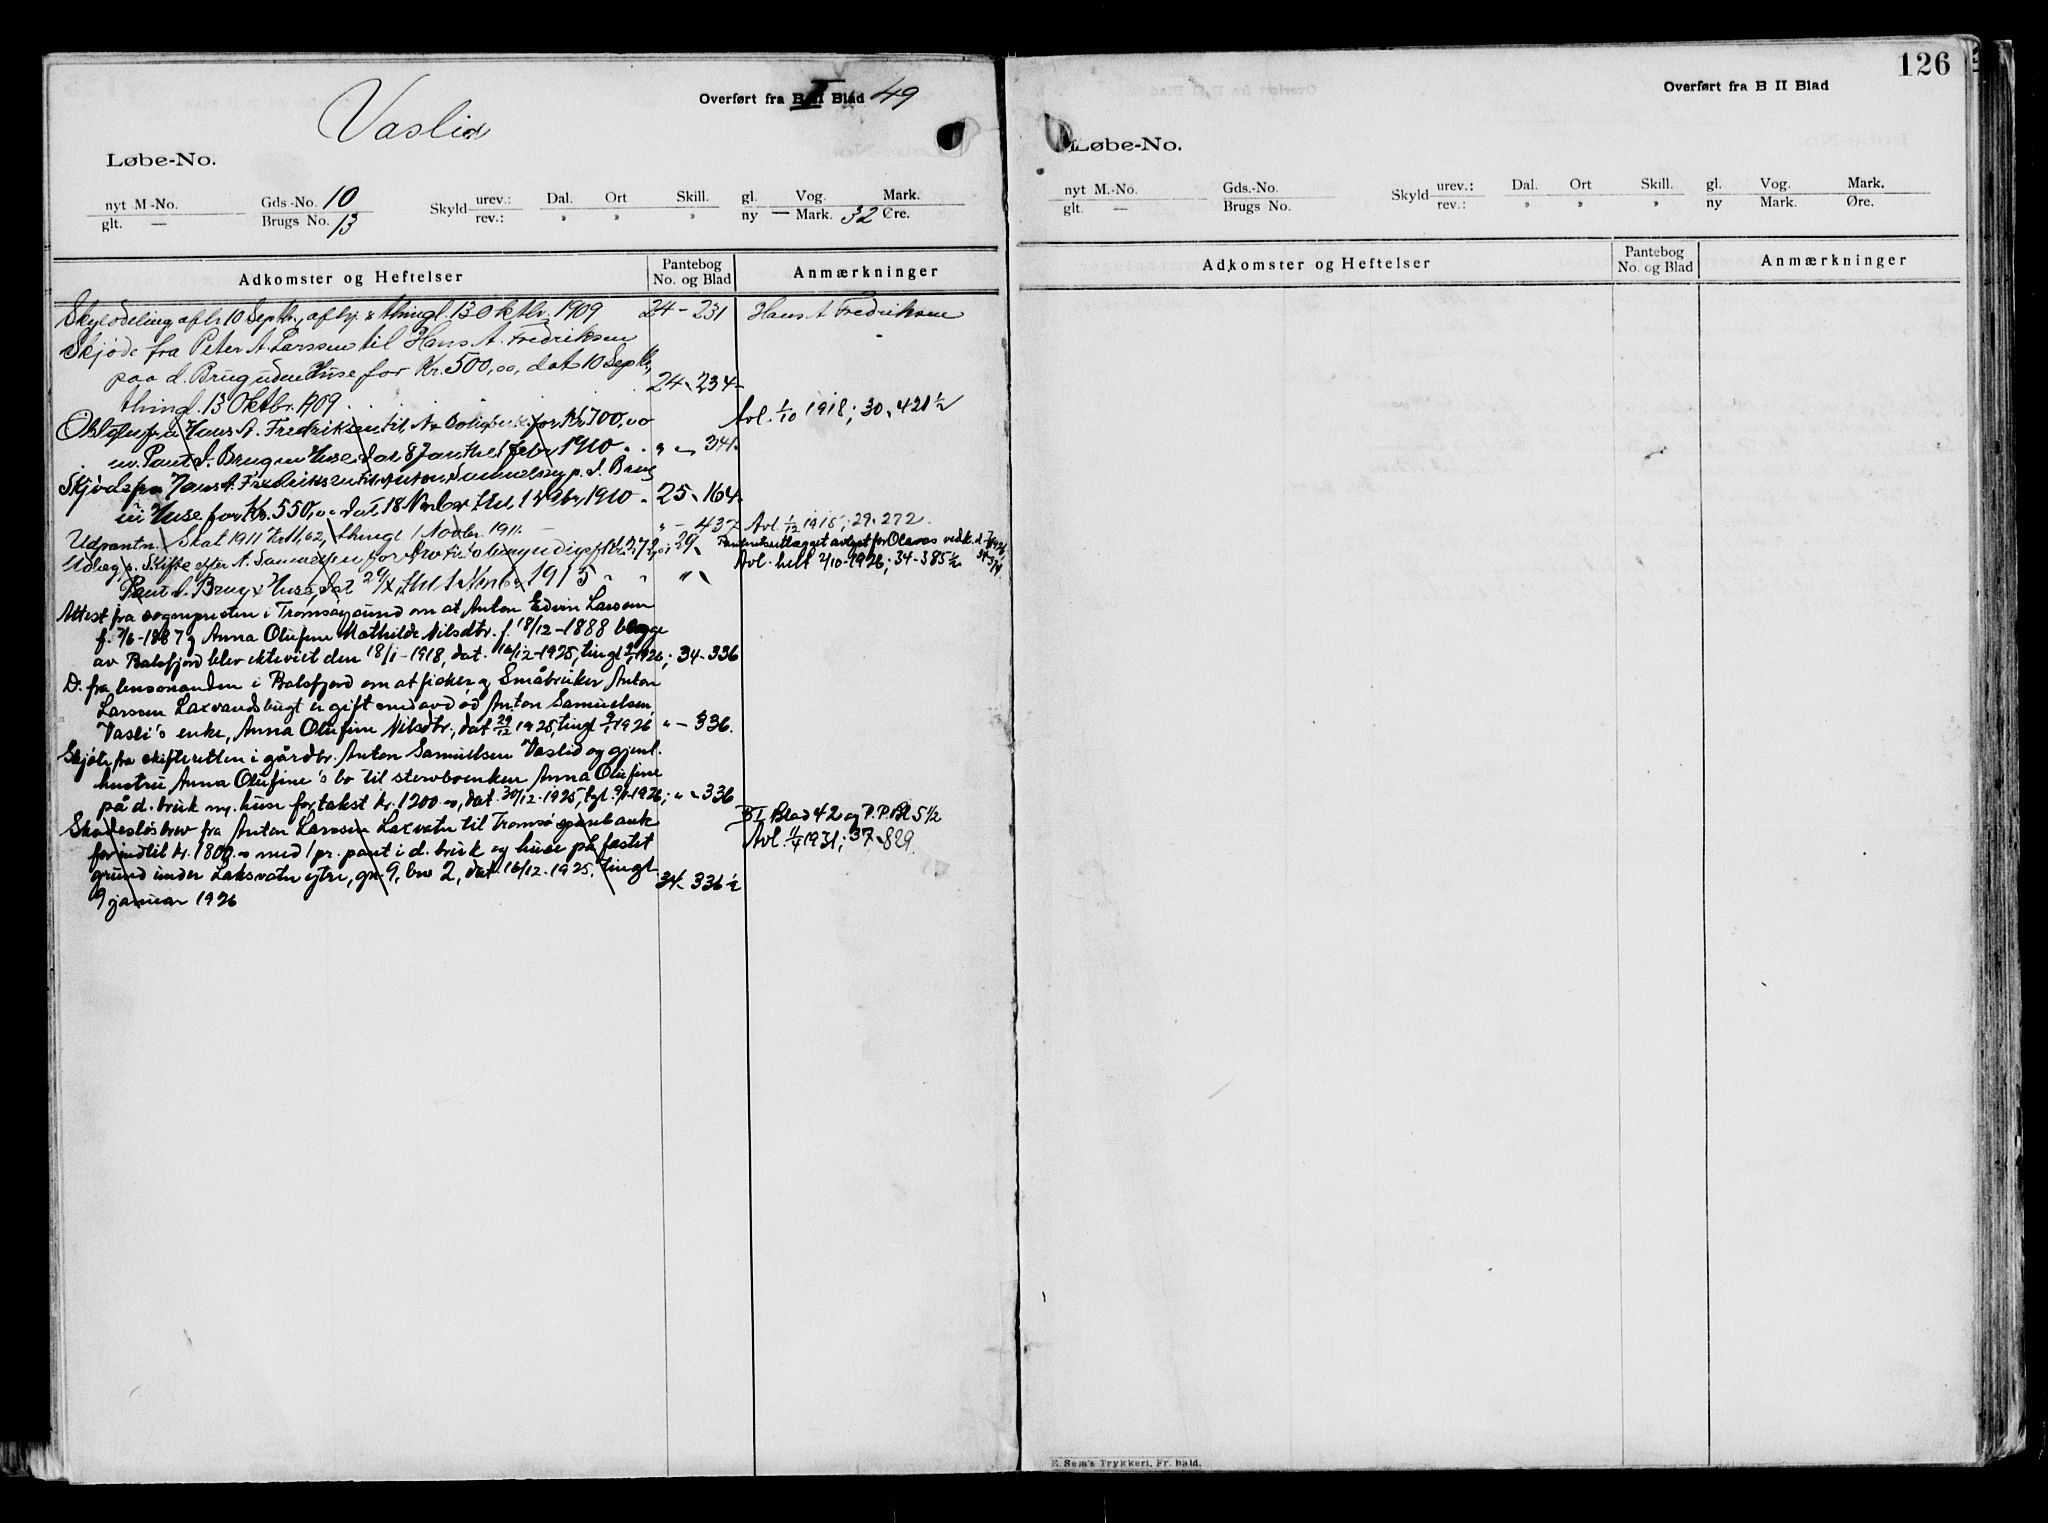 Overført fra B II Blad 49
Vaslid
Løbe-No.
nyt M.-No.
glt. —
Gds.-No. 10
Brugs No. 13
Skyld urev.: Dal. Ort Skill. gl. Vog. Mark.
rev.: " " " ny — Mark. 32 Øre.
Adkomster og Heftelser
Pantebog No. og Blad
Anmærkninger
Skylddeling afh. 10 Septbr., afhj. & thingl. 13 Oktbr. 1909 24 - 231 Hans A Fredriksen
Skjøde fra Peter A. Larssen til Hans A. Fredriksen
paa d. Brug uden Huse for Kr. 500,00, dat 10 Septbr,
thingl. 13 Oktbr. 1909 24 - 234
Obl. fra Hans A. Fredriksen til for Kr 700,00 Avl. 1/10 1918; 30 - 421½
m. Pant d. Brug m Huse dat 8 Jan thl 1 Febr 1910 " - 341
Skjøde fra Hans A. Fredriksen til Anton Samuelsen p. d. Brug
m Huse for Kr. 550,00 dat 18 Novbr thl. 1 1910 25 - 164
Udpantn. Skat 1911 Kr 11,62, thingl 1 Novbr. 1911. " - 437 Avl. 1/12 1915; 29 - 272.
Udlæg p. Skifte efter A. Samuelsen for 29 avlyst for Olavas vedk.
Pant d. Brug x Huse dat 29/X, thl 1 Novbr 1915 " " Avl. helt 2/10-1926; 34-385½
Attest fra sognepresten i Tromsøysund om at Anton Edvin Larssen
f. 7/6-1887 og Anna Olufine Mathilde Nilsdtr. f. 18/12-1888 begge
av Balsfjord blev ekteviet den 18/1-1918, dat. 16/12-1925, tingl 9/1 1926; 34-336
D: fra lensmanden i Balsfjord om at fisker og Småbruker Anton
Larssen Laxvandsbugt er gift med avdød Anton Samuelsen
Vasli's enke, Anna Olufine Nilsdtr., dat 29/12 1925, tingl 9/1 1926 " - 336.
Skjøte fra skifteretten i gårdbr. Anton Samuelsen Vaslid og gjenl.
hustru Anna Olufine's bo til stervboenken Anna Olufine
på d. bruk m. huse for takst kr. 1200.-, dat. 30/12-1925, tgl. 9/1-1926; " - 336
Skadesløsbrev fra Anton Larssen Laxvatn til Tromsø sparebank BI Blad 42 og P.P. Bl 5½
for indtil kr. 1800.- med 1 pr. pant i d. bruk og huse på festet Avl. 1931; 37-829.
grund under Laksvatn ytre, gn. 9, bn 2, dat. 16/12-1925, tingl
9 januar 1926 34-336½
126
Overført fra B II Blad
Løbe-No.
nyt M.-No.
glt. —
Gds.-No.
Brugs No.
Skyld urev.: Dal. Ort Skill. gl. Vog. Mark.
rev.: " " " ny Mark. Øre.
Adkomster og Heftelser
Pantebog No. og Blad
Anmærkninger
E. Sem's Trykkeri, Fr.hald.